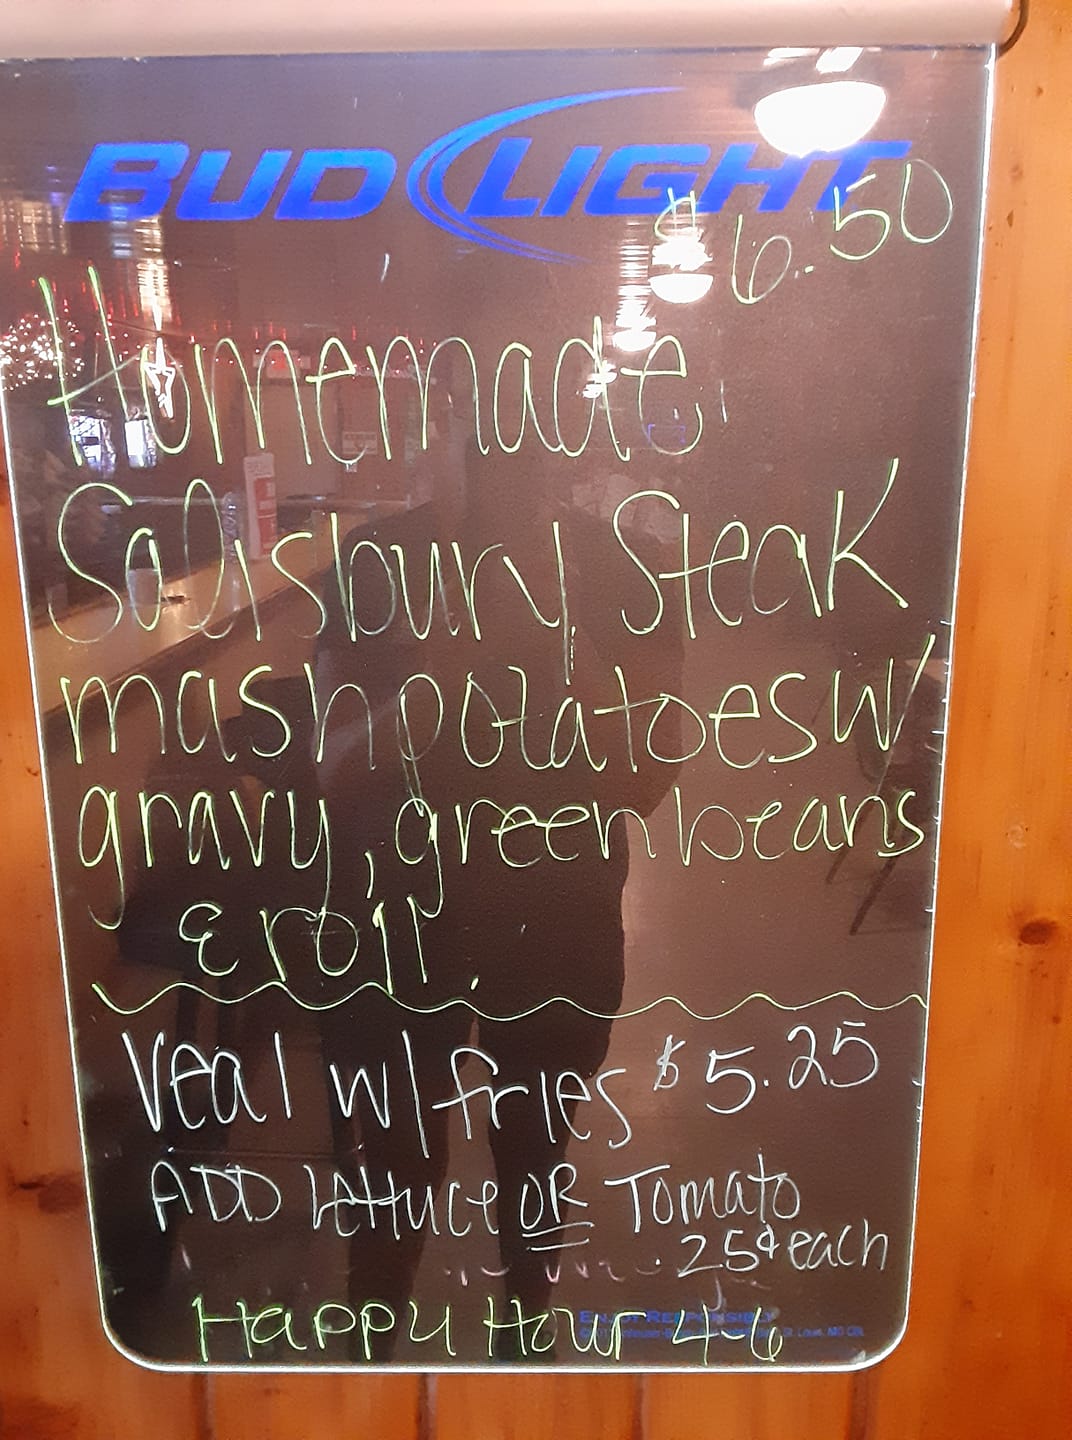 BUD LIGHT
$6.50
Homemade
Salisbury Steak
mash potatoes w/
gravy, green beans
& roll.
Veal w/ fries $5.25
ADD lettuce OR Tomato
.25¢ each
Happy Hour 4-6
ENJOY RESPONSIBLY
St. Louis, MO